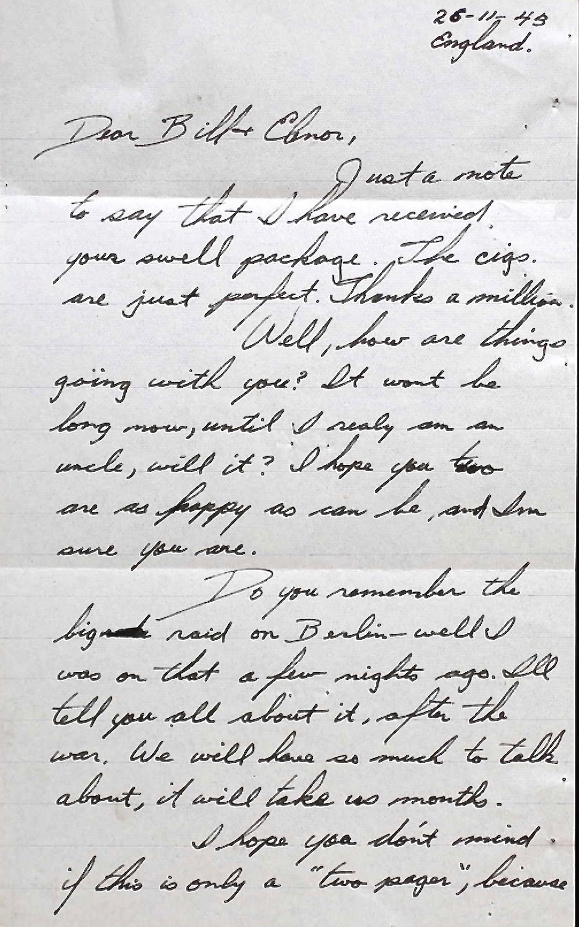 26-11-43
England.
Dear Bill & Elinor,
Just a note
to say that I have received
your swell package. The cigs.
are just perfect. Thanks a million.
Well, how are things
going with you? It wont be
long now, until I realy am an
uncle, will it? I hope you two
are as happy as can be, and Im
sure you are.
Do you remember the
big raid on Berlin - well I
was on that a few nights ago. Ill
tell you all about it, after the
war. We will have so much to talk
about, it will take us months.
I hope you don't mind
if this is only a "two pager", because